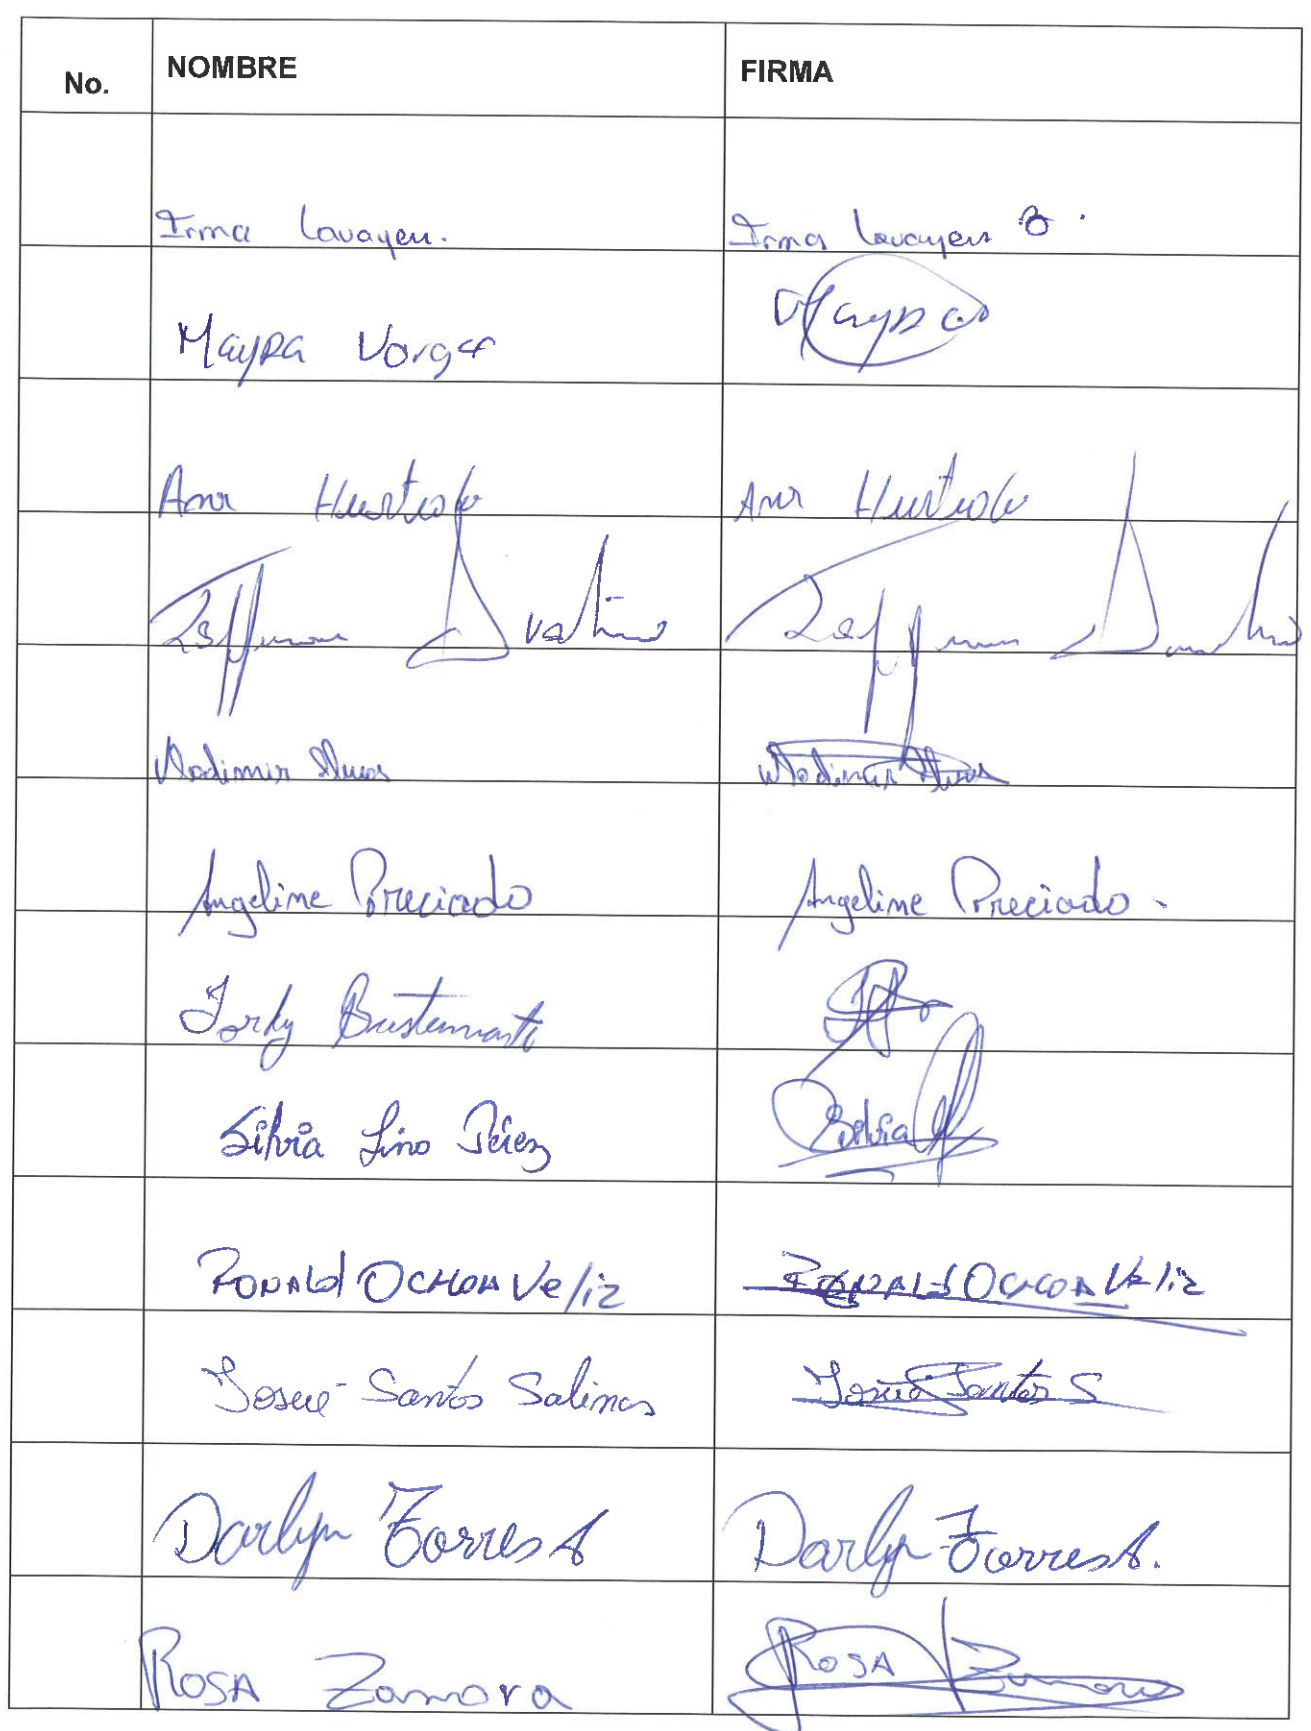 No. NOMBRE FIRMA
Irma Lavayen. Irma Lavayen B.
Mayra Vargas Mayra
Ana Hurtado Ana Hurtado
Jefferson
Vladimir Vladimir
Angeline Preciado Angeline Preciado -
Jordy Bustamante
Silvia Lino Pérez Silvia
RONALD OCHOA Veliz RONALD OCHOA Veliz
Josué Santos Salinas Josué Santos S
Darlyn Torres A Darlyn Torres A.
ROSA Zamora ROSA Zamora